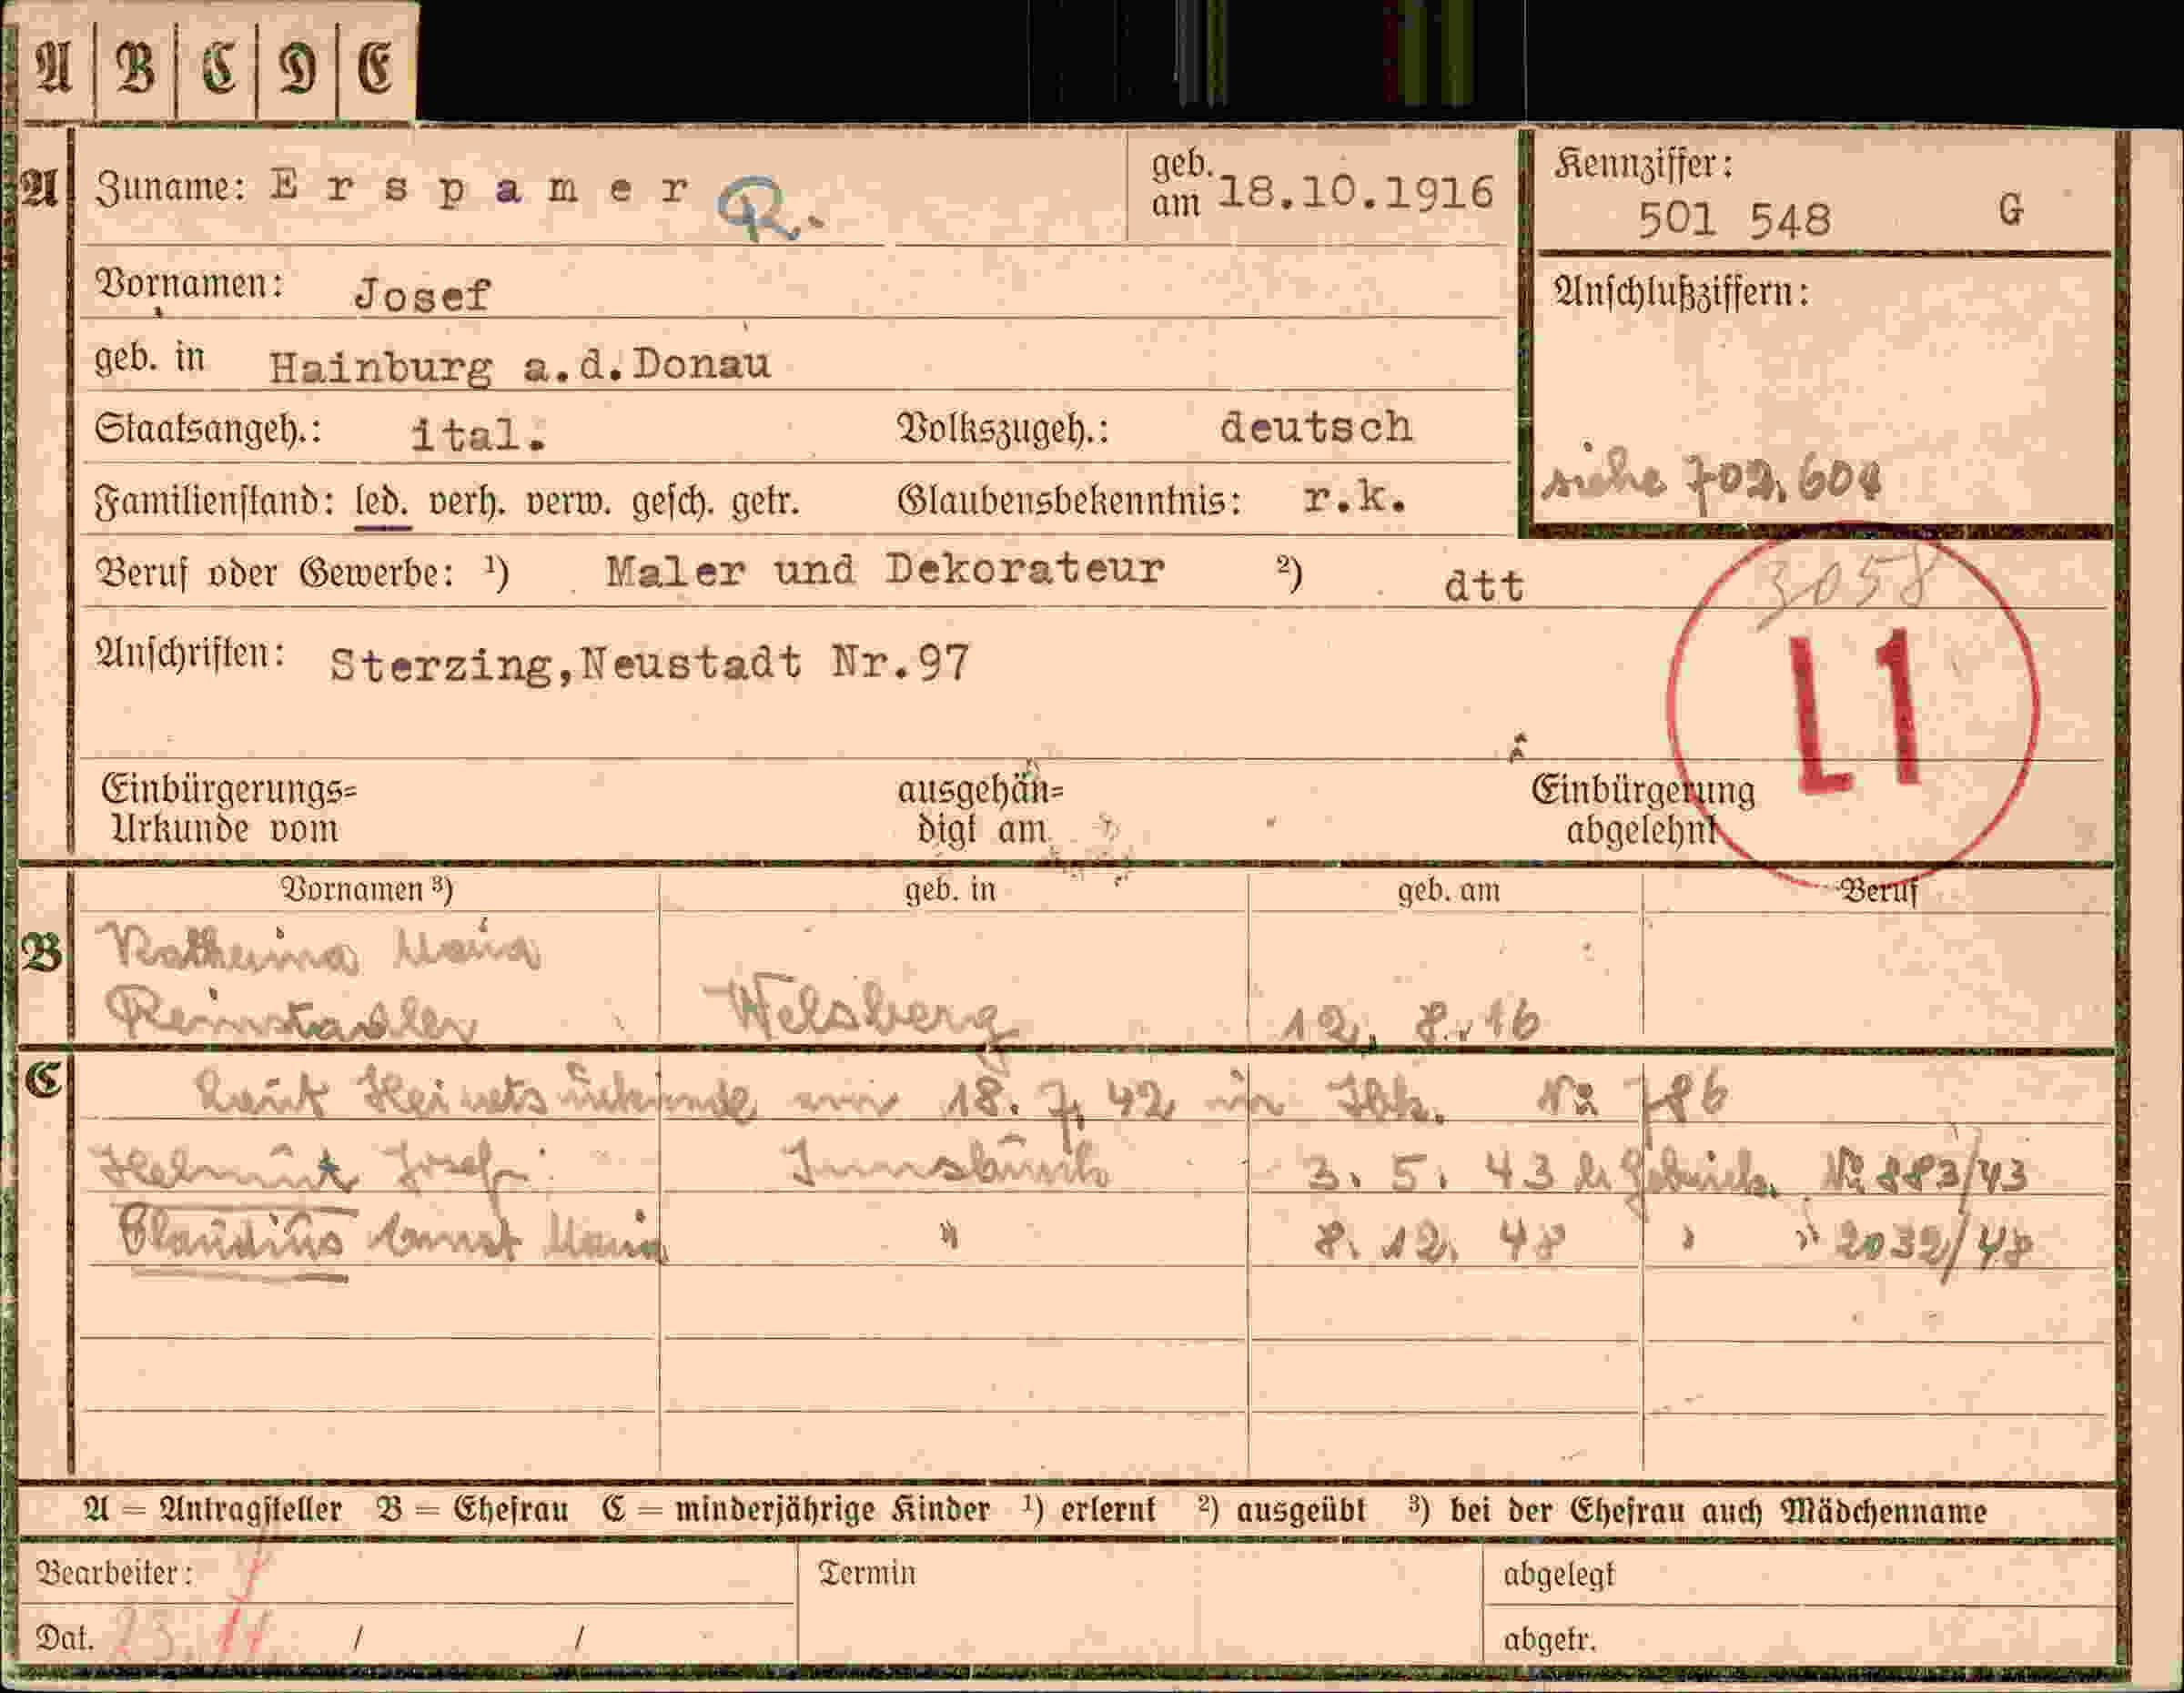 A B C D E
A Zuname: Erspamer R. geb. am 18.10.1916 Kennziffer: 501 548 G
Vornamen: Josef Anschlußziffern:
geb. in Hainburg a.d.Donau
Staatsangeh.: ital. Volkszugeh.: deutsch
siehe 702.604
Familienstand: led. verh. verw. gesch. getr. Glaubensbekenntnis: r.k.
Beruf oder Gewerbe: ¹) Maler und Dekorateur ²) dtt
3058
Anschriften: Sterzing,Neustadt Nr.97
L1
Einbürgerungs= ausgehän= Einbürgerung
Urkunde vom digt am abgelehnt
Vornamen ³) geb. in geb. am Beruf
B Katherina Maria
Reinstadler Welsberg 12. 8. 16
C laut Heiratsurkunde am 18. 7. 42 in Ibk. No 786
Helmut Josef Innsbruck 3. 5. 43 No 883/43
Claudius Ernst Maria " 8. 12. 48 " " 2032/48
A = Antragsteller B = Ehefrau C = minderjährige Kinder ¹) erlernt ²) ausgeübt ³) bei der Ehefrau auch Mädchenname
Bearbeiter: Termin abgelegt
Dat. 23. 11. / / abgetr.